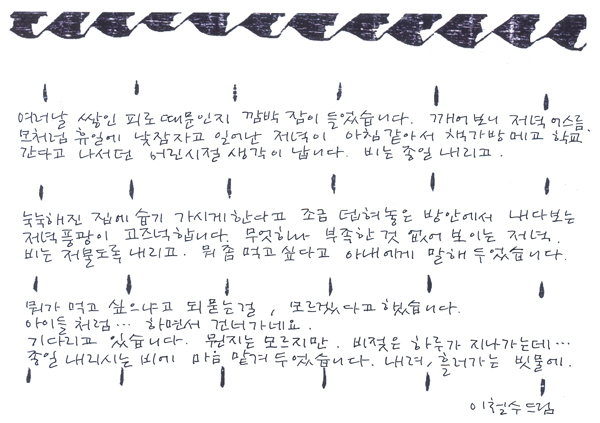 여러날 쌓인 피로 때문인지 깜박 잠이 들었습니다. 깨어보니 저녁 어스름.
모처럼 휴일에 낮잠자고 일어난 저녁이 아침같아서 책가방 메고 학교
간다고 나서던 어린시절 생각이 납니다. 비는 종일 내리고.
눅눅해진 집에 습기 가시게한다고 조금 덥혀놓은 방안에서 내다보는
저녁풍광이 고즈넉합니다. 무엇하나 부족한 것 없어 보이는 저녁.
비는 저물도록 내리고. 뭐 좀 먹고 싶다고 아내에게 말해 두었습니다.
뭐가 먹고 싶으냐고 되묻는걸, 모르겠다고 했습니다.
아이들처럼… 하면서 건너가네요.
기다리고 있습니다. 뭔지는 모르지만. 비젖은 하루가 지나가는데…
종일 내리시는 비에 마음 맡겨 두었습니다. 내려, 흘러가는 빗물에.
이철수 드림